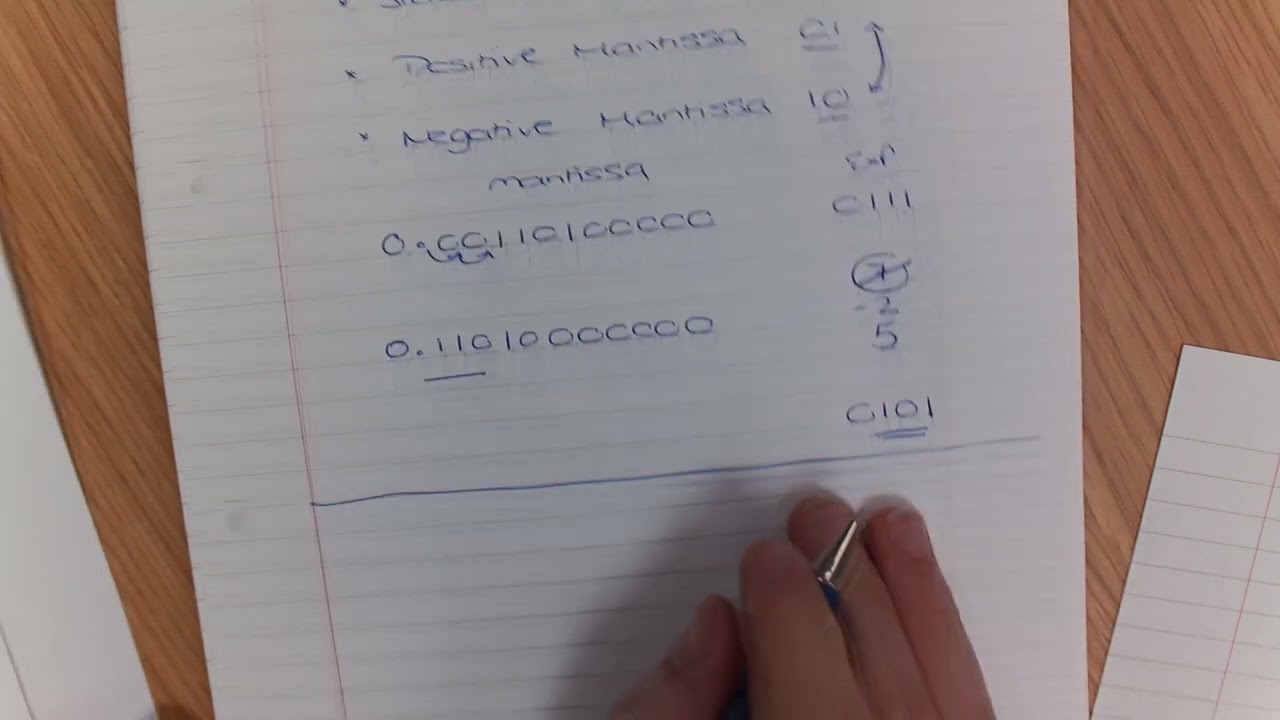 * Positive Mantissa 01
* Negative Mantissa 10
mantissa Exp
0.00110100000 0111
+
-2
0.11010000000 5
0101